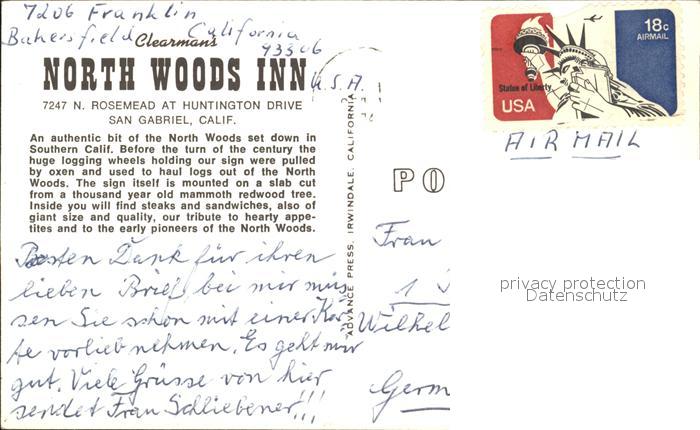 7206 Franklin
Bakersfield California
93306
U.S.A.
Clearman's
NORTH WOODS INN
7247 N. ROSEMEAD AT HUNTINGTON DRIVE
SAN GABRIEL, CALIF.
An authentic bit of the North Woods set down in
Southern Calif. Before the turn of the century the
huge logging wheels holding our sign were pulled
by oxen and used to haul logs out of the North
Woods. The sign itself is mounted on a slab cut
from a thousand year old mammoth redwood tree.
Inside you will find steaks and sandwiches, also of
giant size and quality, our tribute to hearty appe-
tites and to the early pioneers of the North Woods.
Besten Dank für ihren
lieben Brief, bei mir müs
sen Sie schon mit einer Kar-
te vorlieb nehmen. Es geht mir
gut. Viele Grüsse von hier
sendet Frau Schliebener!!!
ADVANCE PRESS, IRWINDALE, CALIFORNIA
18c
AIRMAIL
Statue of Liberty
USA
AIR MAIL
PO
Frau
1
Wilhel
Germ
privacy protection
Datenschutz